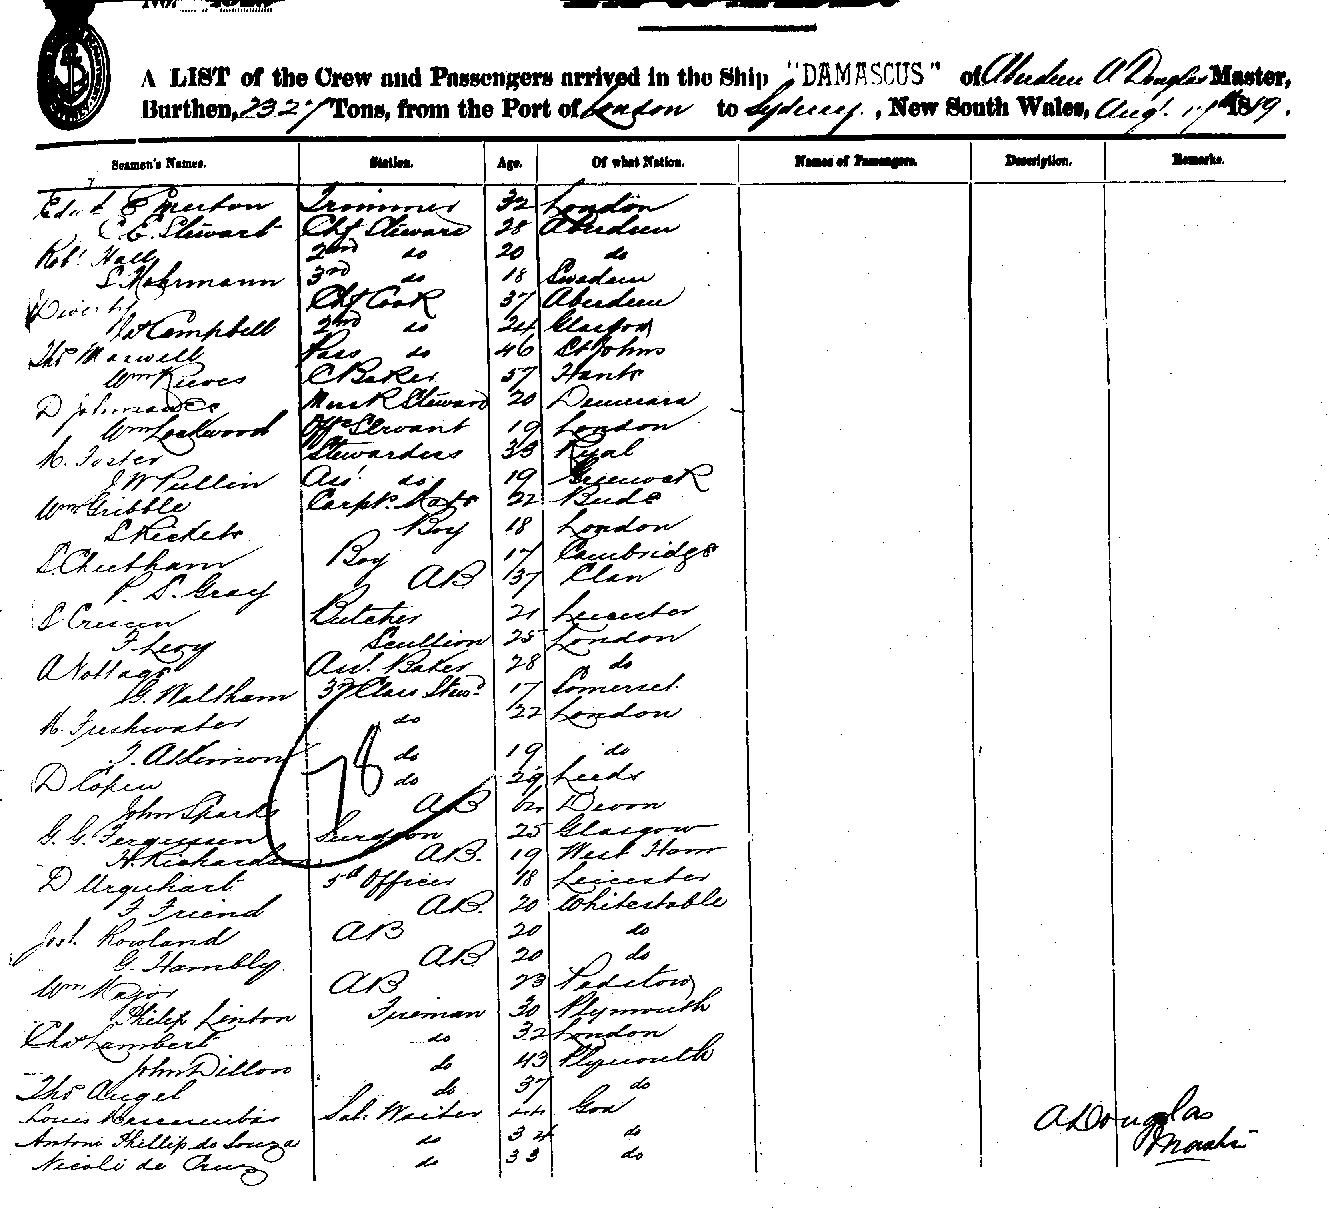 A LIST of the Crew and Passengers arrived in the Ship "DAMASCUS" of Aberdeen A Douglas Master,
Burthen, 2327 Tons, from the Port of London to Sydney, New South Wales, Aug. 17th 1889.
Seamen's Names. Station. Age. Of what Nation. Names of Passengers. Description. Remarks.
Edwd Emerton Trimmer 32 London
C. E. Stewart Chf Steward 28 Aberdeen
Robt Hall 2nd do 20 do
3rd do 18 Sweden
Chf Cook 37 Aberdeen
Campbell 2nd do 24 Glasgow
Thos Maxwell Pass do 46 St Johns
Wm Reeves C Baker 57 Hants
D Mess R Steward 20 Demerara
Wm Lockwood Offs Servant 19 London
M. Foster Stewardess 33
J W Pullin Ass. do 19 Greenock
Wm Gribble Carpt. Mate 22 Bude
S Rickets Boy 18 London
S. Cheetham Boy 17 Cambridge
P. S. Gray AB 37 Clan
S Butcher 21 Leicester
F Levy Scullion 25 London
A Nottage Ass. Baker 28 do
G. Waltham 3rd Class Stewd 17 Somerset
M. Freshwater do 22 London
do 19 do
D Copen do 29 Leeds
John Sparks AB Devon
G. G. Fergusson Surgeon 25 Glasgow
H. Richards AB. 19 West Ham
D Urquhart 5th Officer 18 Leicester
F Friend AB. 20 Whitestable
Josh. Rowland AB 20 do
G. Hambly AB 20 do
Wm Major AB 23 Padstow
Philip Linton Fireman 30 Plymouth
Chas Lambert do 32 London
John Dillon do 43 Plymouth
Thos Angel do 37 do
Louis Sal. Waiter 44 Goa
Antoni Phillip de Souza do 34 do
Nicoli de Cruz do 33 do
78
A Douglas
Master